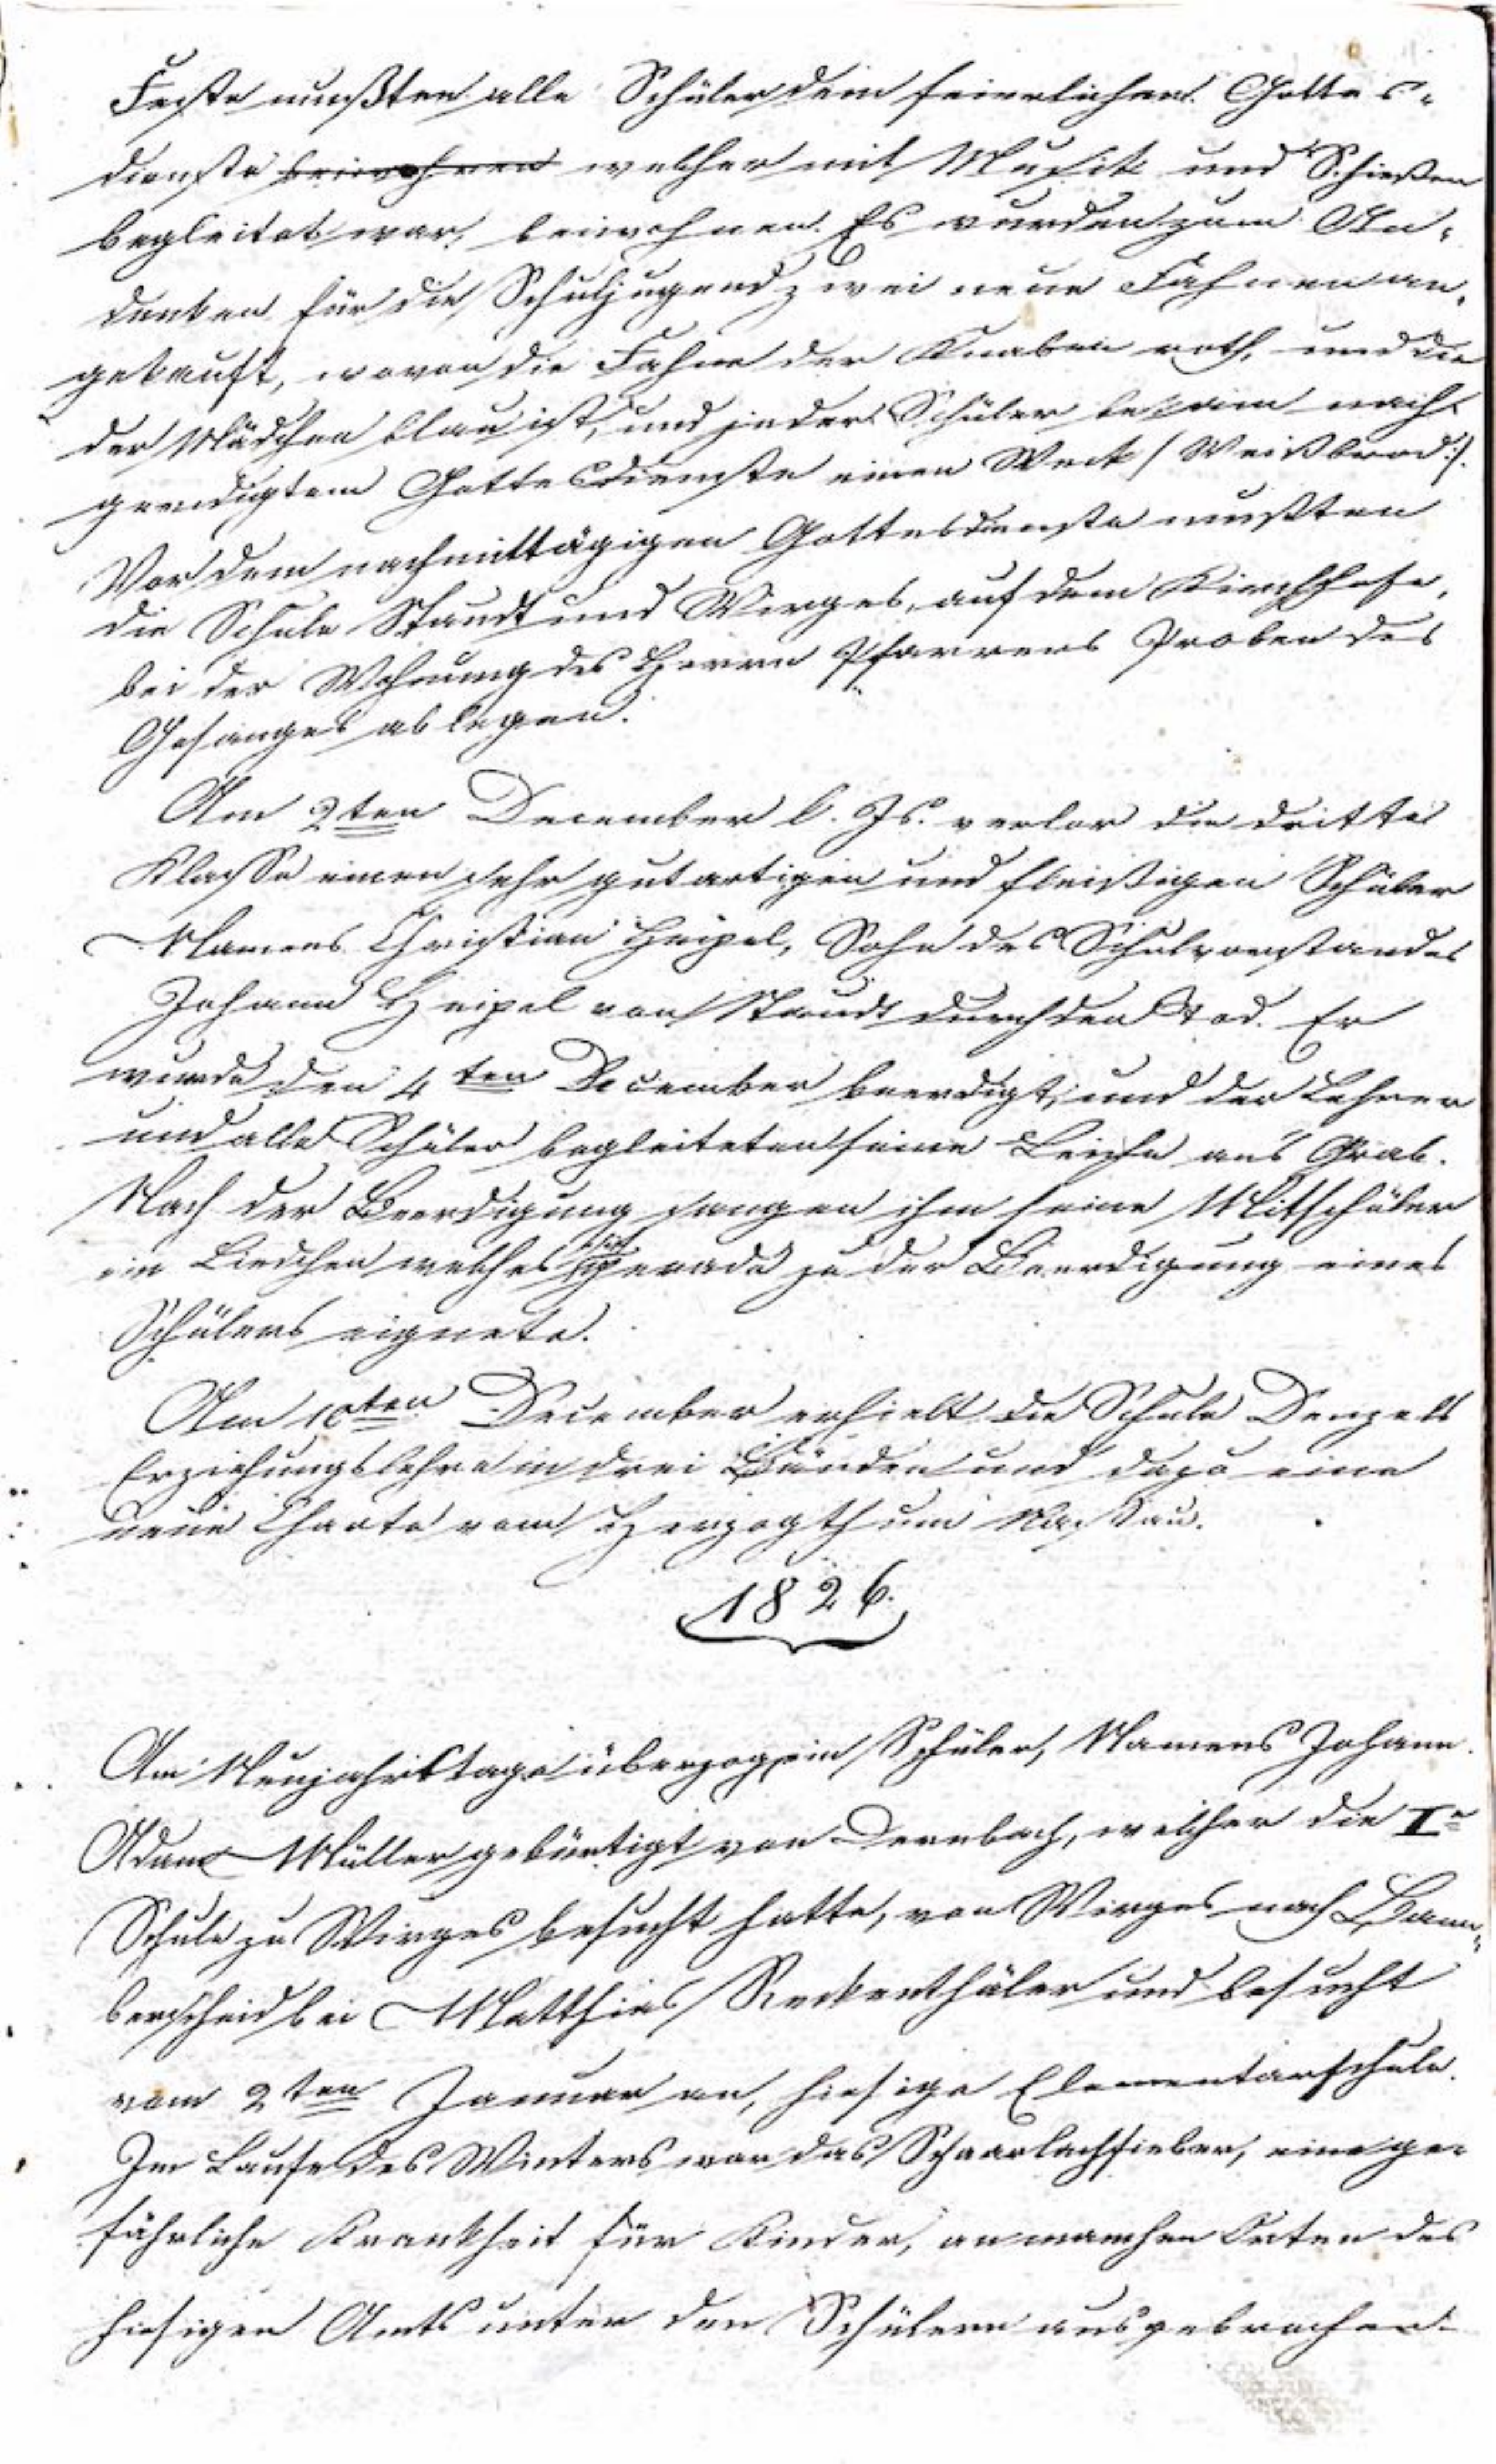 Feste mußten alle Schüler dem feierlichen Gottes-
dienste beiwohnen welcher mit Musik und Schießen
begleitet war, beiwohnen. Es wurden zum An-
denken für die Schuljugend zwei neue Fahnen an-
gekauft, wovon die Fahne der Knaben roth, und die
der Mädchen blau ist, und jeder Schüler bekam nach
geendigtem Gottesdienste einen Weck /: Weißbrod :/.
Vor dem nachmittägigen Gottesdienste mußten
die Schule Staudt und Wirges, auf dem Kirchhofe,
bei der Wohnung des Herrn Pfarrers Proben des
Gesanges ablegen.
Am 2ten December l. Js. verlor die dritte
Klasse einen sehr gutartigen und fleißigen Schüler
Namens Christian Heipel, Sohn des Schulvorstandes
Johann Heipel von Staudt durch den Tod. Er
wurde den 4ten December beerdigt, und der Lehrer
und alle Schüler begleiteten seine Leiche an's Grab.
Nach der Beerdigung sangen ihm seine Mitschüler
ein Liedchen welches sich gerade zu der Beerdigung eines
Schülers eignete.
Am 10ten December erhielt die Schule Denzels
Erziehungslehre in drei Bänden und dazu eine
neue Charte vom Herzogthum Nassau.
1826.
Am Neujahrstage überzog ein Schüler, Namens Johann
Adam Müller gebürtigt von Dernbach, welcher die Ie
Schule zu Wirges besucht hatte, von Wirges nach Bann-
berscheid bei Matthias Reckenthäler und besucht
vom 2ten Januar an, hiesige Elementarschule.
Im Laufe des Winters war das Scharlachfieber, eine ge-
fährliche Krankheit für Kinder, an manchen Orten des
hiesigen Amts unter den Schülern ausgebrochen.